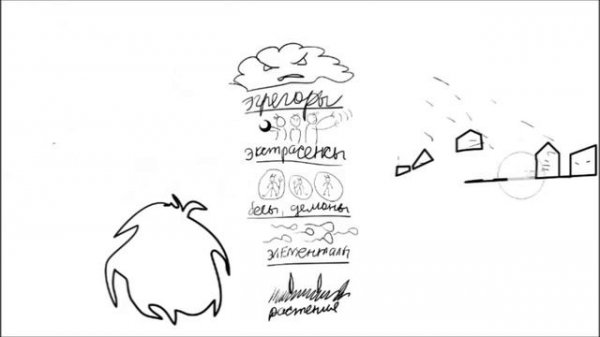 эгрегоры
экстрасенсы
бесы, демоны
элементалы
растения